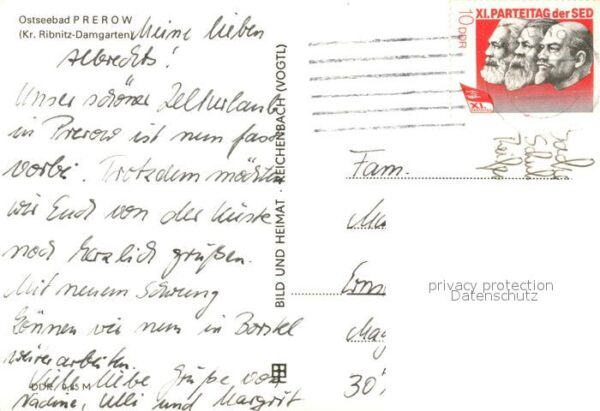 Ostseebad PREROW
(Kr. Ribnitz-Damgarten)
Meine lieben
Albrechts!
Unser schöner Zelturlaub
in Prerow ist nun fast
vorbei. Trotzdem möchten
wir Euch von der Küste
noch herzlich grüßen.
Mit neuem Schwung
können wir nun in Borstel
weiterarbeiten.
Viele liebe Grüße von
Nadine, Ulli und Margrit
DDR 0,15 M
BILD UND HEIMAT · REICHENBACH (VOGTL)
XI. PARTEITAG der SED
10 DDR
XI.
Fam.
30
privacy protection
Datenschutz